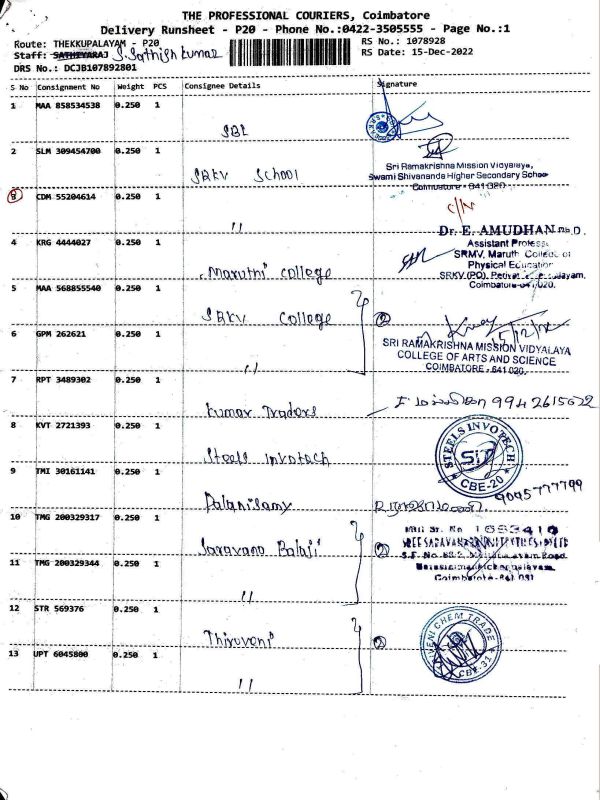 THE PROFESSIONAL COURIERS, Coimbatore
Delivery Runsheet - P20 - Phone No.:0422-3505555 - Page No.:1
Route: THEKKUPALAYAM - P20
RS No.: 1078928
Staff: SATHIYARAJ S. Sathish kumar
RS Date: 15-Dec-2022
DRS No.: DCJB107892801
S No Consignment No Weight PCS Consignee Details Signature
1 MAA 858534538 0.250 1
SBI
2 SLM 309454700 0.250 1
SRKV School
Sri Ramakrishna Mission Vidyalaya,
Swami Shivananda Higher Secondary School
Coimbatore - 641 020
3 CDM 55204614 0.250 1
"
Dr. E. AMUDHAN
Assistant Professor
4 KRG 4444027 0.250 1
SRMV, Maruthi College of
Physical Education
Maruthi college
SRKV (PO), Perianaickenpalayam,
Coimbatore-641 020.
5 MAA 568855540 0.250 1
SRKV College
2
15/12/22
6 GPM 262621 0.250 1
SRI RAMAKRISHNA MISSION VIDYALAYA
COLLEGE OF ARTS AND SCIENCE
COIMBATORE - 641 020.
"
7 RPT 3489302 0.250 1
Kumar Traders
9942615622
8 KVT 2721393 0.250 1
Steels Invotech
STEELS INVOTECH
SIT
CBE-20
9 TMI 30161141 0.250 1
9095777799
Palanisamy
10 TMG 200329317 0.250 1
Saravana Balaji
2
Coimbatore-641 031
11 TMG 200329344 0.250 1
"
12 STR 569376 0.250 1
Thiruveni
2
CHEM TRADE
CBE-31
13 UPT 6045800 0.250 1
"